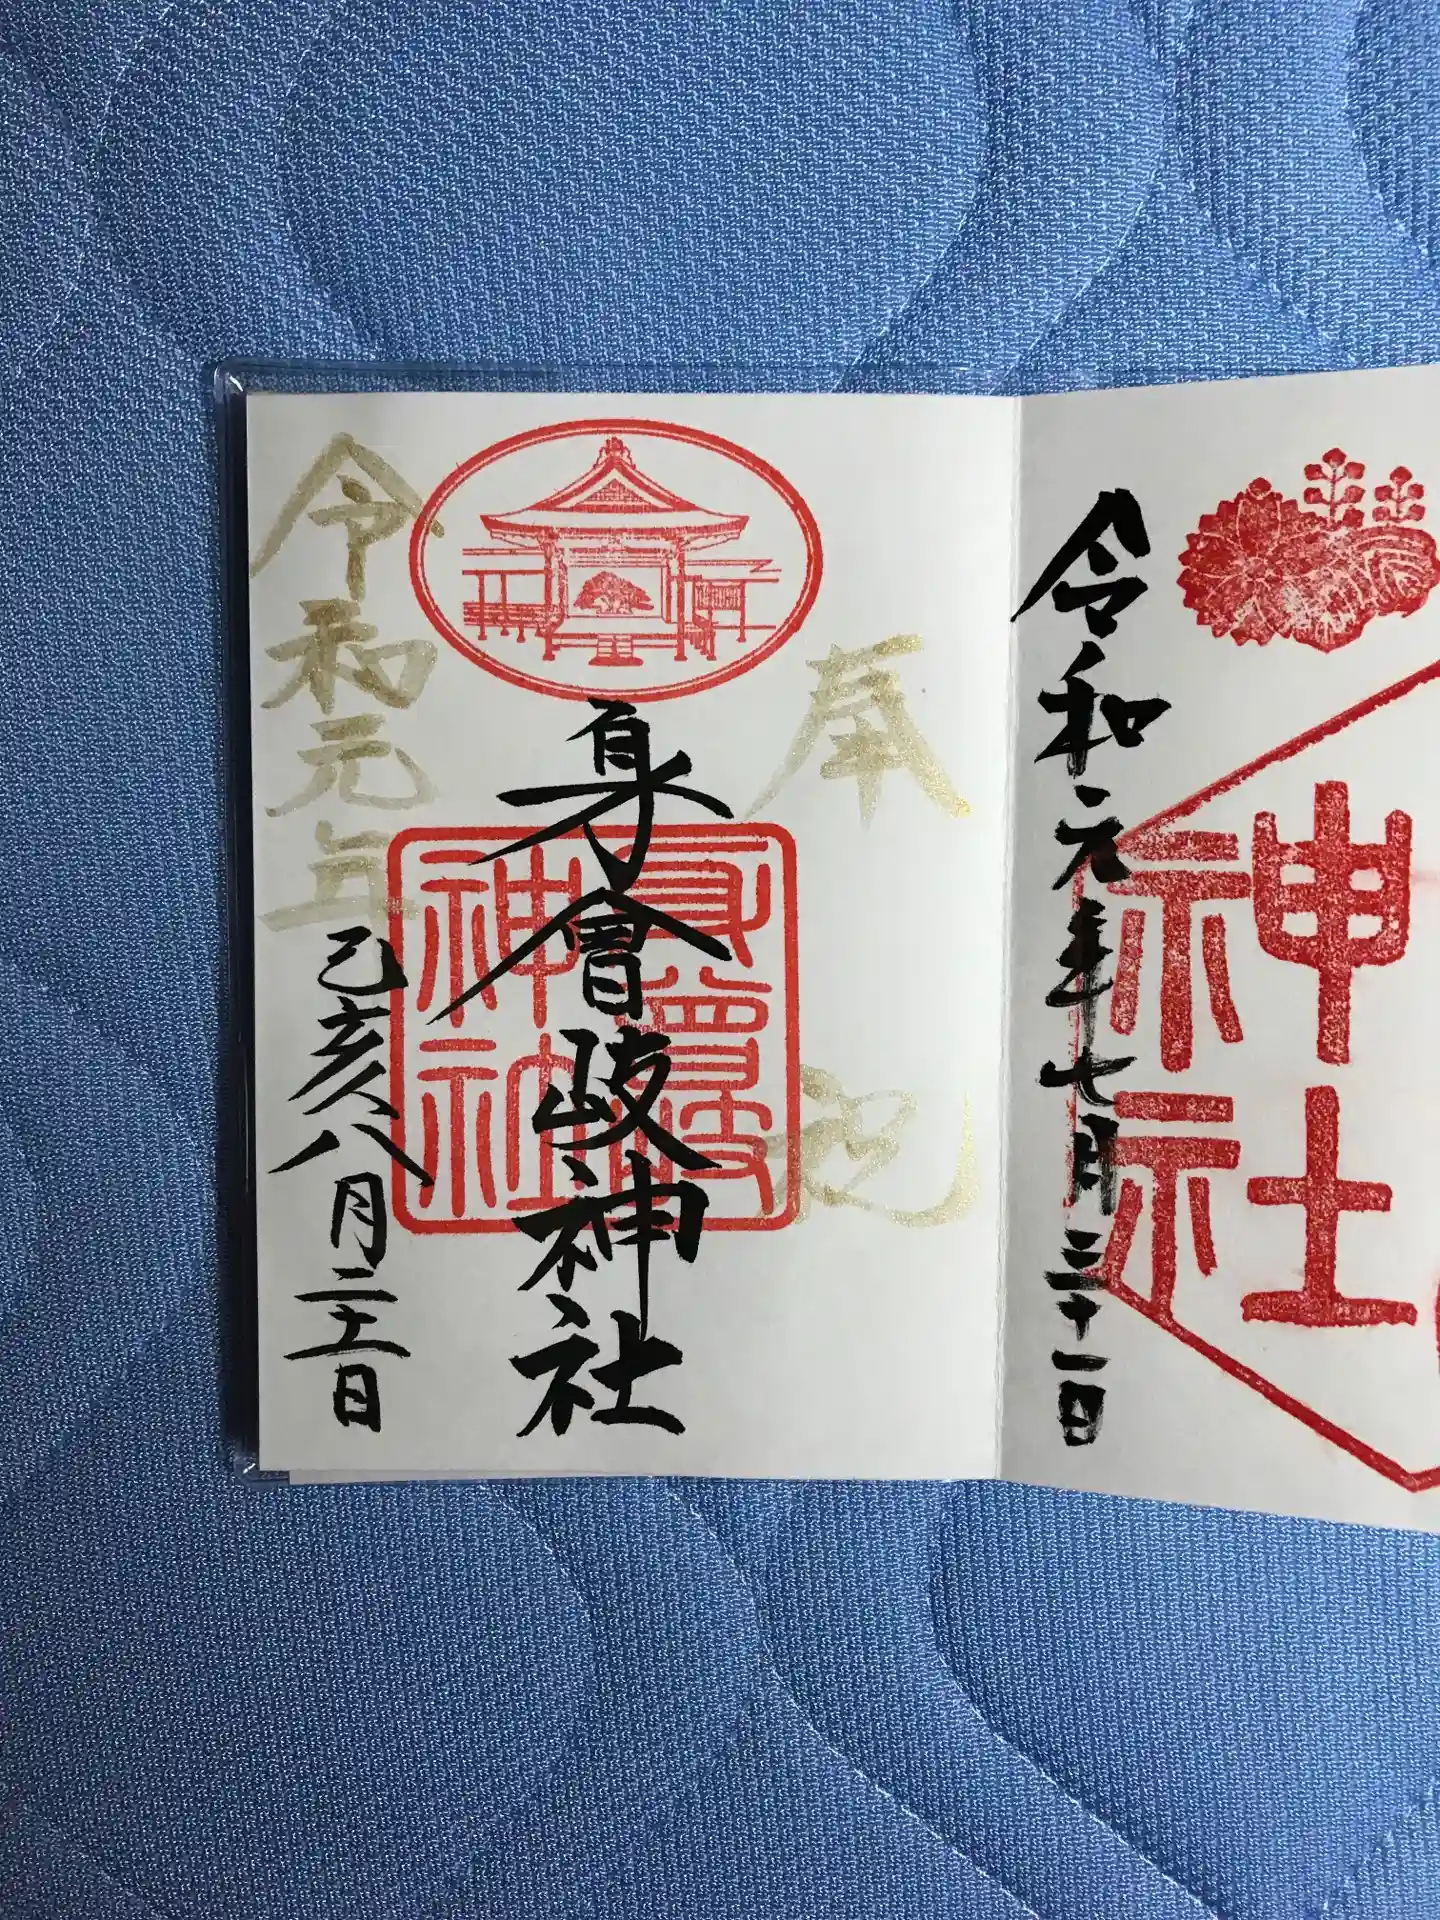 神社
令和元年七月三十一日
奉祝
身曾岐神社
身曾岐
神社
令和元年
己亥八月二十一日